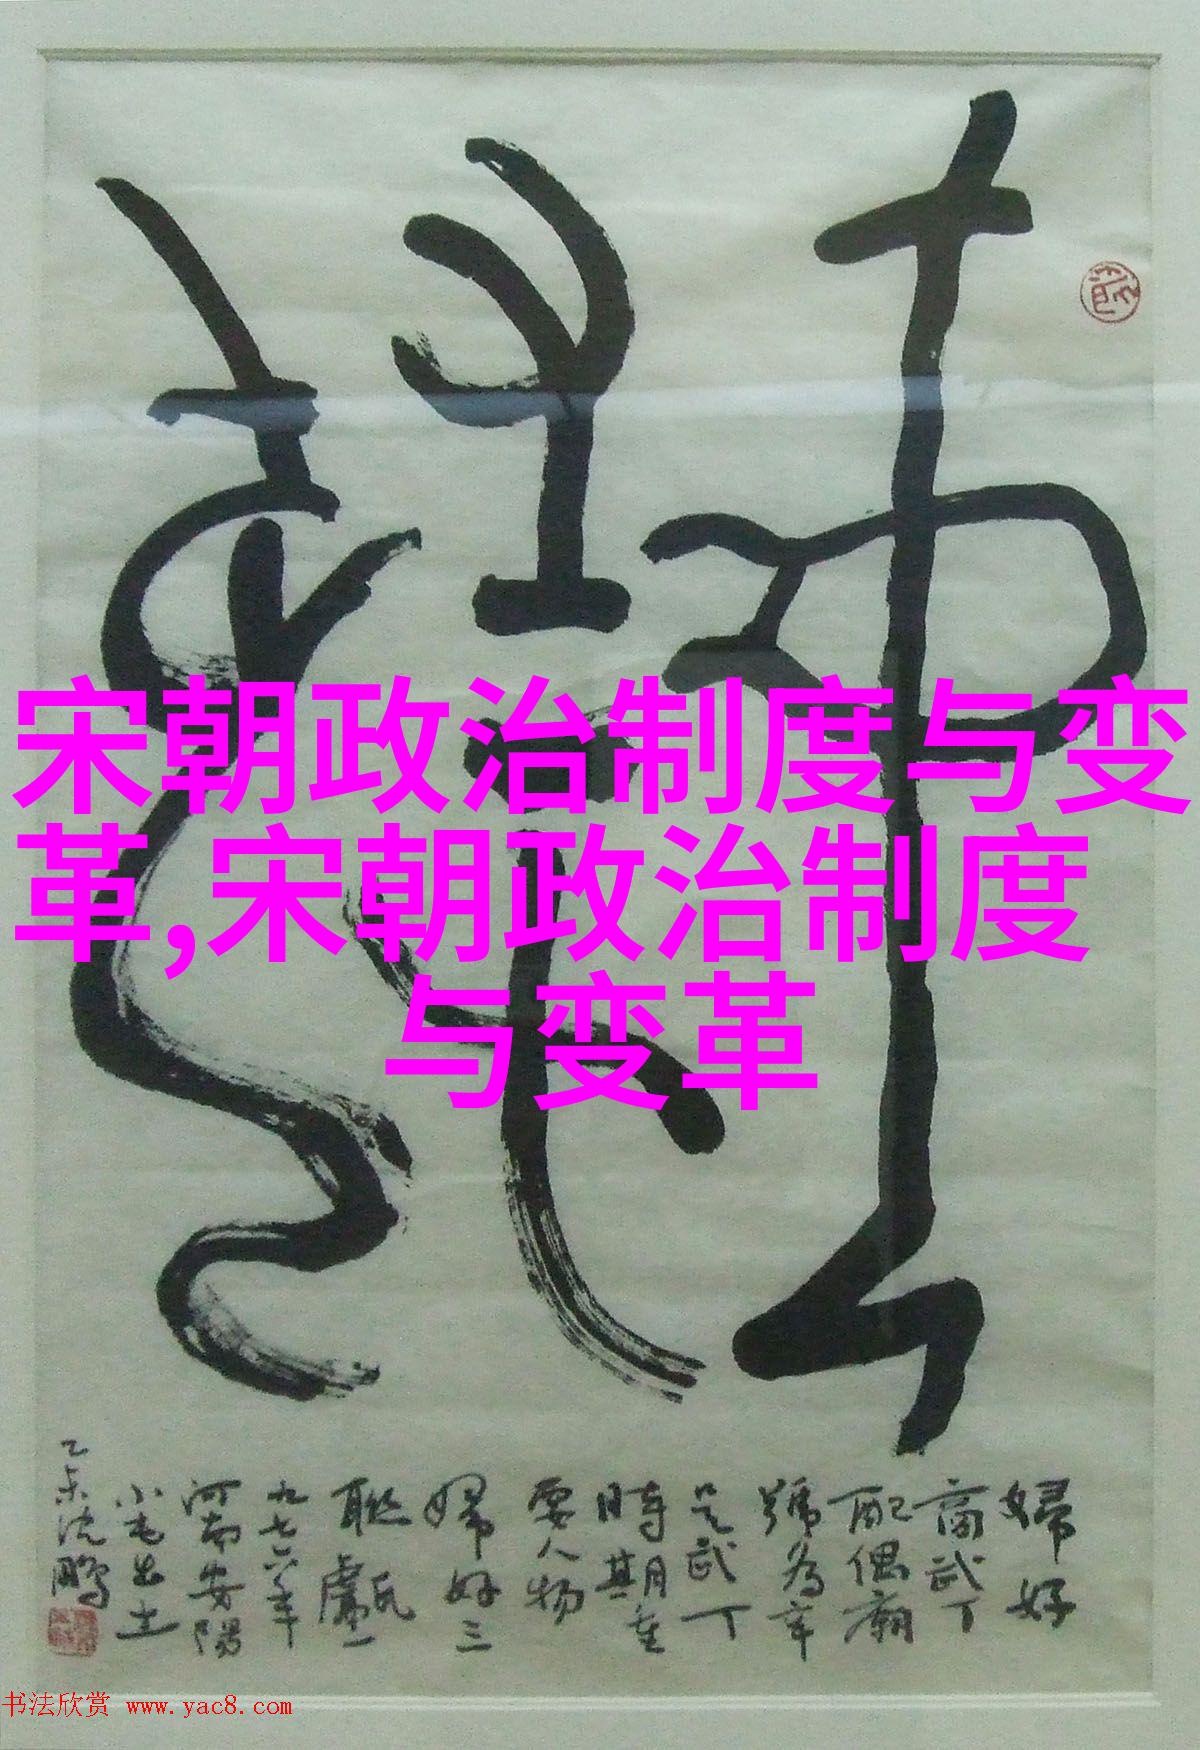 宋朝政治制度与变
革,宋朝政治制度
与变革
婦好
商武丁
配偶廟
號为辛
是武丁
時期重
要人物
婦好三
聯甗一
九七六年
河南安陽
小屯出土
乙未沈鹏
书法欣赏 www.yac8.com